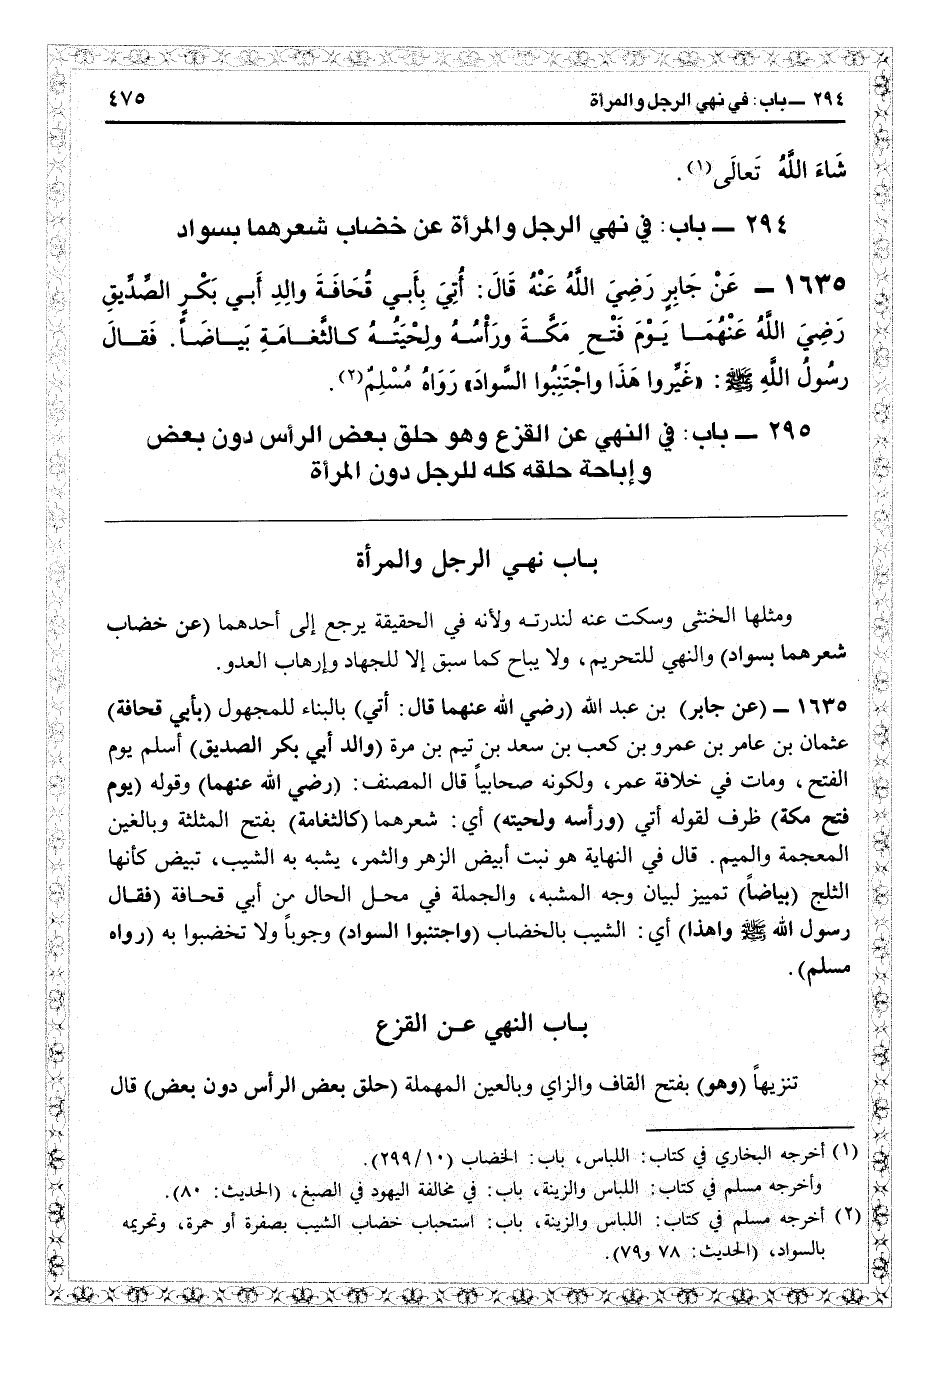 ٢٩٤ ـ باب: في نهي الرجل والمرأة
٤٧٥
شَاءَ اللَّهُ تَعالَى(١).
٢٩٤ ـ باب: في نهي الرجل والمرأة عن خضاب شعرهما بسواد
١٦٣٥ ـ عَنْ جَابِرٍ رَضِيَ اللَّهُ عَنْهُ قَالَ: أُتِيَ بِأَبـي قُحَافَةَ والِدِ أَبـي بَكْرٍ الصِّدِّيقِ
رَضِيَ اللَّهُ عَنْهُمَـا يَـوْمَ فَتْـحِ مَكَّـةَ ورَأْسُـهُ ولِحْيَتُـهُ كـالثَّغـامَـةِ بَيـاضَـاً. فَقـالَ
رسُولُ اللَّهِ ﷺ: «غَيِّروا هَذَا واجْتَنِبُوا السَّوادَ» رَوَاهُ مُسْلِمٌ(٢).
٢٩٥ ـ باب: في النهي عن القزع وهو حلق بعض الرأس دون بعض
وإباحة حلقه كله للرجل دون المرأة
بـاب نهـي الرجل والمرأة
ومثلها الخنثى وسكت عنه لندرتـه ولأنه في الحقيقة يرجع إلى أحدهما (عن خضاب
شعرهما بسواد) والنهي للتحريم، ولا يباح كما سبق إلا للجهاد وإرهاب العدو.
١٦٣٥ ـ (عن جابر) بن عبد الله (رضي الله عنهما قال: أتي) بالبناء للمجهول (بأبي قحافة)
عثمان بن عامر بن عمرو بن كعب بن سعد بن تيم بن مرة (والد أبي بكر الصديق) أسلم يوم
الفتح، ومات في خلافة عمر، ولكونه صحابياً قال المصنف: (رضي الله عنهما) وقوله (يوم
فتح مكة) ظرف لقوله أتي (ورأسه ولحيته) أي: شعرهما (كالثغامة) بفتح المثلثة وبالغين
المعجمة والميم. قال في النهاية هو نبت أبيض الزهر والثمر، يشبه به الشيب، تبيض كأنها
الثلج (بياضاً) تمييز لبيان وجه المشبه، والجملة في محل الحال من أبي قحافة (فقـال
رسول الله ﷺ واهذا) أي: الشيب بالخضاب (واجتنبوا السواد) وجوباً ولا تخضبوا به (رواه
مسلم).
بـاب النهي عـن القزع
تنزيهاً (وهو) بفتح القاف والزاي وبالعين المهملة (حلق بعض الرأس دون بعض) قال
(١) أخرجه البخاري في كتاب: اللباس، باب: الخضاب (٢٩٩/١٠).
وأخرجه مسلم في كتاب: اللباس والزينة، باب: في مخالفة اليهود في الصبغ، (الحديث: ٨٠).
(٢) أخرجه مسلم في كتاب: اللباس والزينة، باب: استحباب خضاب الشيب بصفرة أو حمرة، وتحريمه
بالسواد، (الحديث: ٧٨ و٧٩).